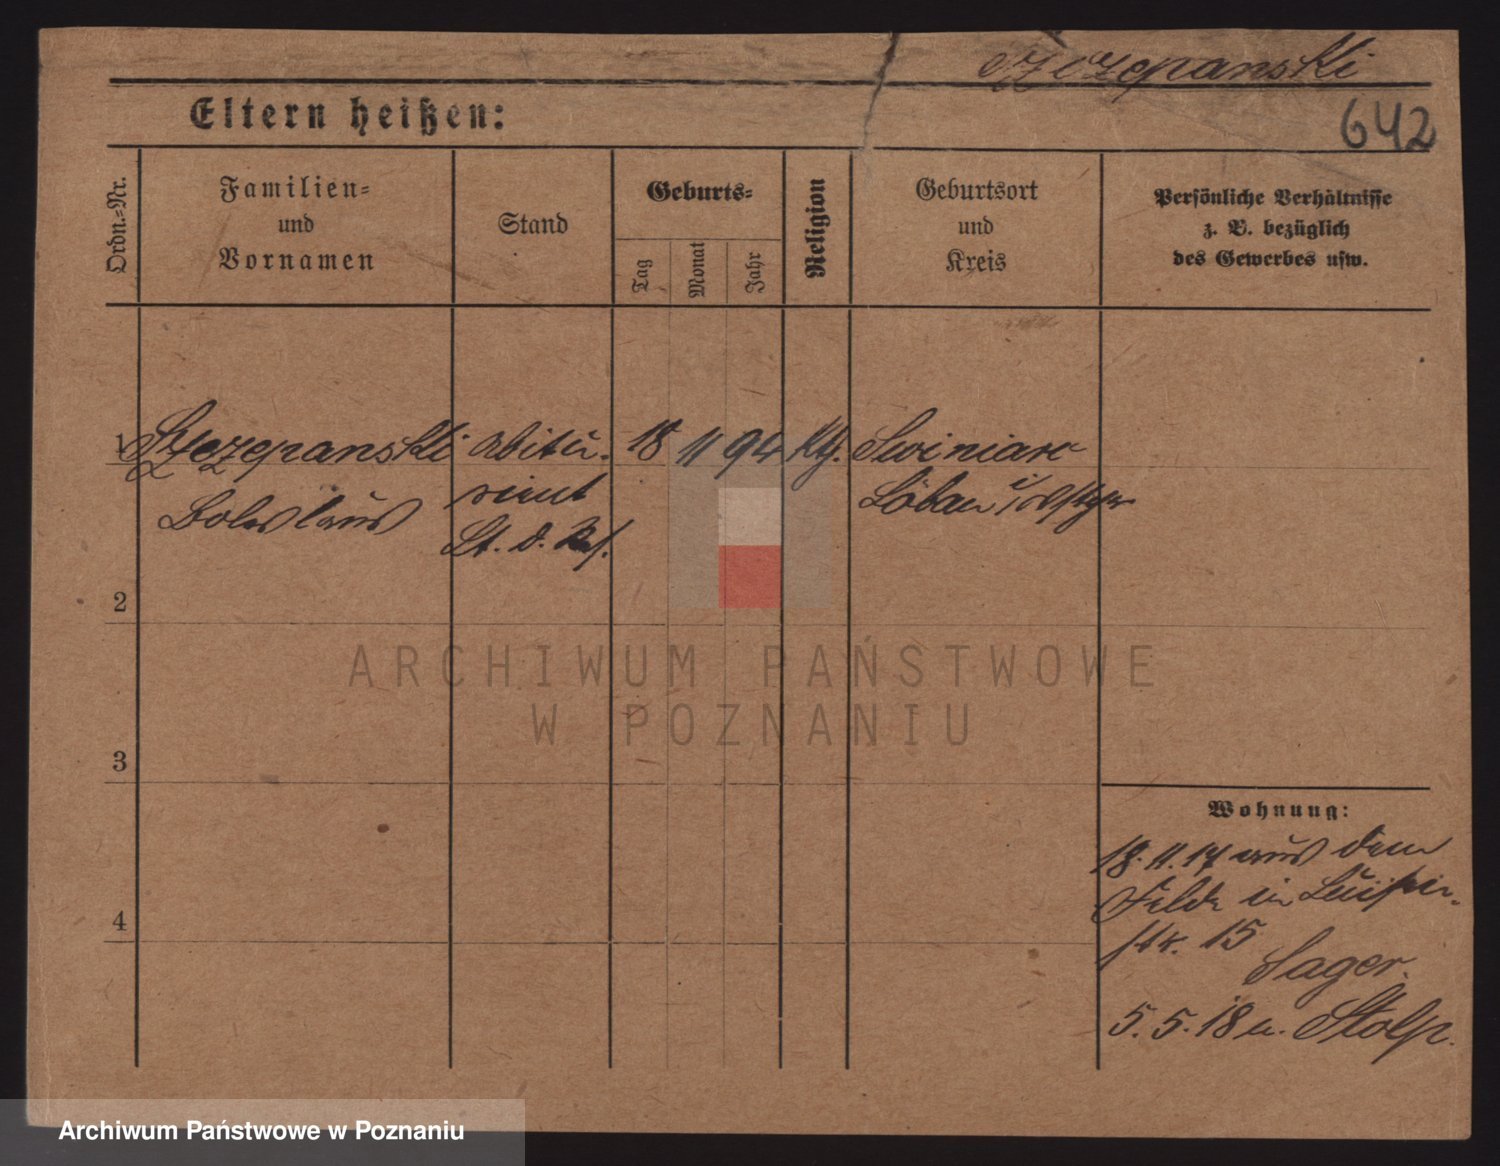 Szczepanski
Eltern heißen:
642
Ordn.=Nr.
Familien=
und
Vornamen
Stand
Geburts=
Tag
Monat
Jahr
Religion
Geburtsort
und
Kreis
Persönliche Verhältnisse
z. B. bezüglich
des Gewerbes usw.
1 Szczepanski Abitu- 18 11 94 Kth. Swiniarc
Boleslaus rient Löbau i/Westpr
St. d. Res.
2
3
4
ARCHIWUM PAŃSTWOWE
W POZNANIU
Wohnung:
18.11.17 aus dem
Felde in Luisen-
str. 15
Sager.
5.5.18 n. Stolp.
Archiwum Państwowe w Poznaniu